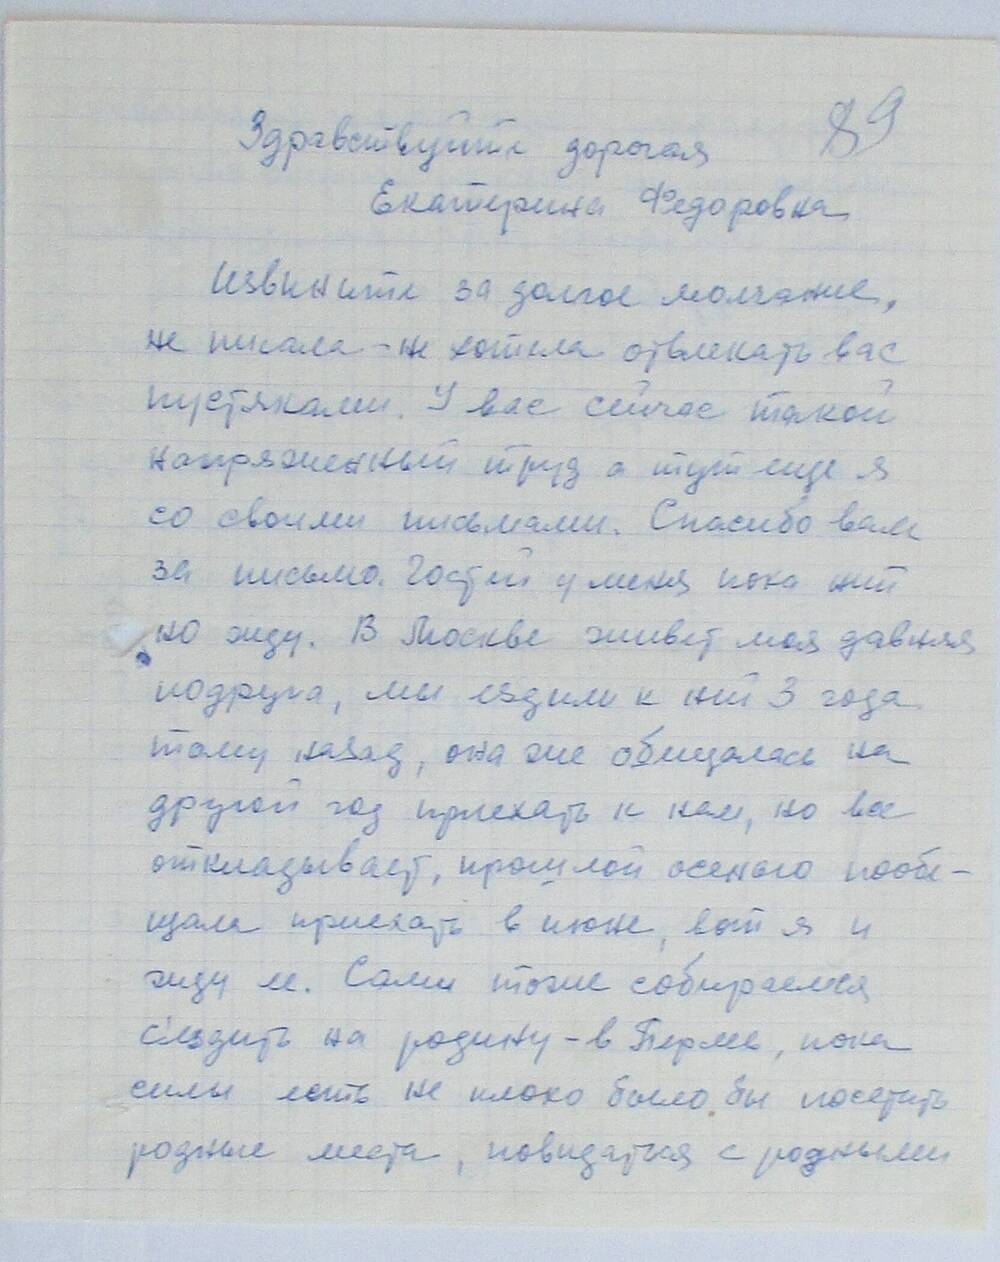 89
Здравствуйте дорогая
Екатерина Федоровна
Извините за долгое молчание,
не писала - не хотела отвлекать вас
пустяками. У вас сейчас такой
напряженный труд а тут еще я
со своими письмами. Спасибо вам
за письмо. Гостей у меня пока нет
но жду. В Москве живет моя давняя
подруга, мы ездили к ней 3 года
тому назад, она же обещалась на
другой год приехать к нам, но все
откладывает, прошлой осенью пообе-
щала приехать в июне, вот я и
жду ее. Сами тоже собираемся
съездить на родину - в Пермь, пока
силы есть не плохо было бы посетить
родные места, повидаться с родными